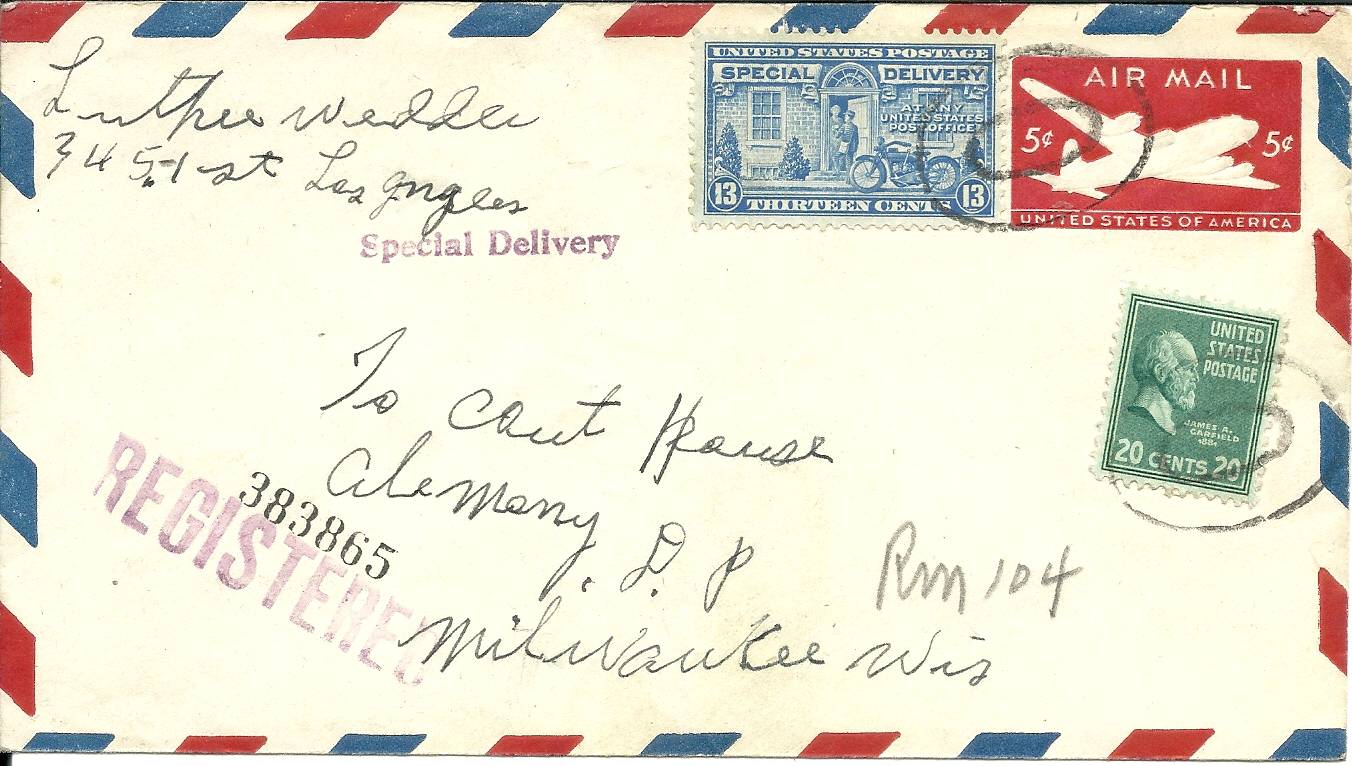 Luther Wedde
345-1 st Los Angeles
Special Delivery
UNITED STATES POSTAGE
SPECIAL DELIVERY
AT ANY
UNITED STATES
POST OFFICE
13 THIRTEEN CENTS 13
AIR MAIL
5¢ 5¢
UNITED STATES OF AMERICA
UNITED
STATES
POSTAGE
JAMES A.
GARFIELD
1881
20 CENTS 20
To Cout House
Alemony. D. P
Rm 104
Milwaukee Wis
383865
REGISTERED